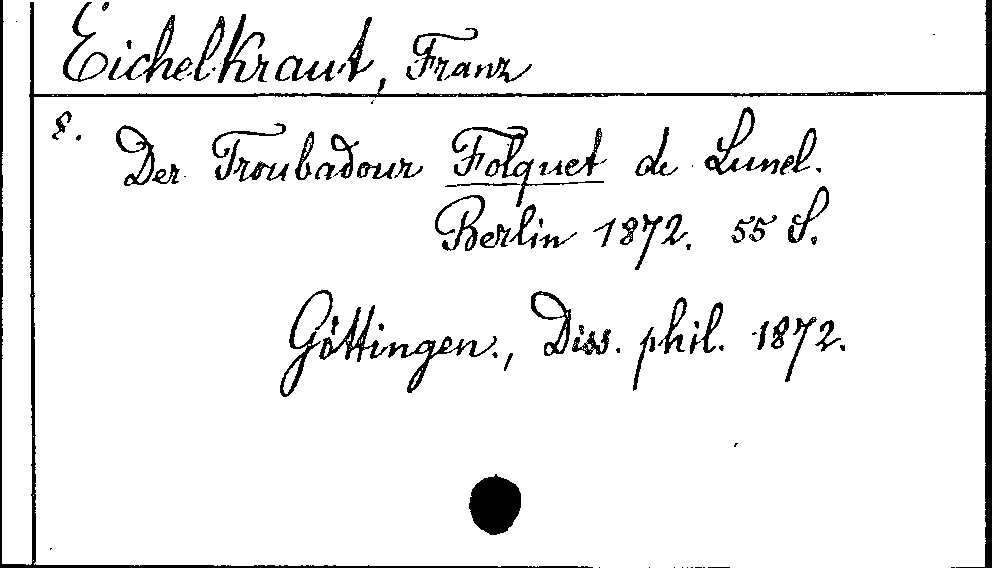 Eichelkraut, Franz
8. Der Troubadour Folquet de Lunel.
Berlin 1872. 55 S.
Göttingen., Diss. phil. 1872.